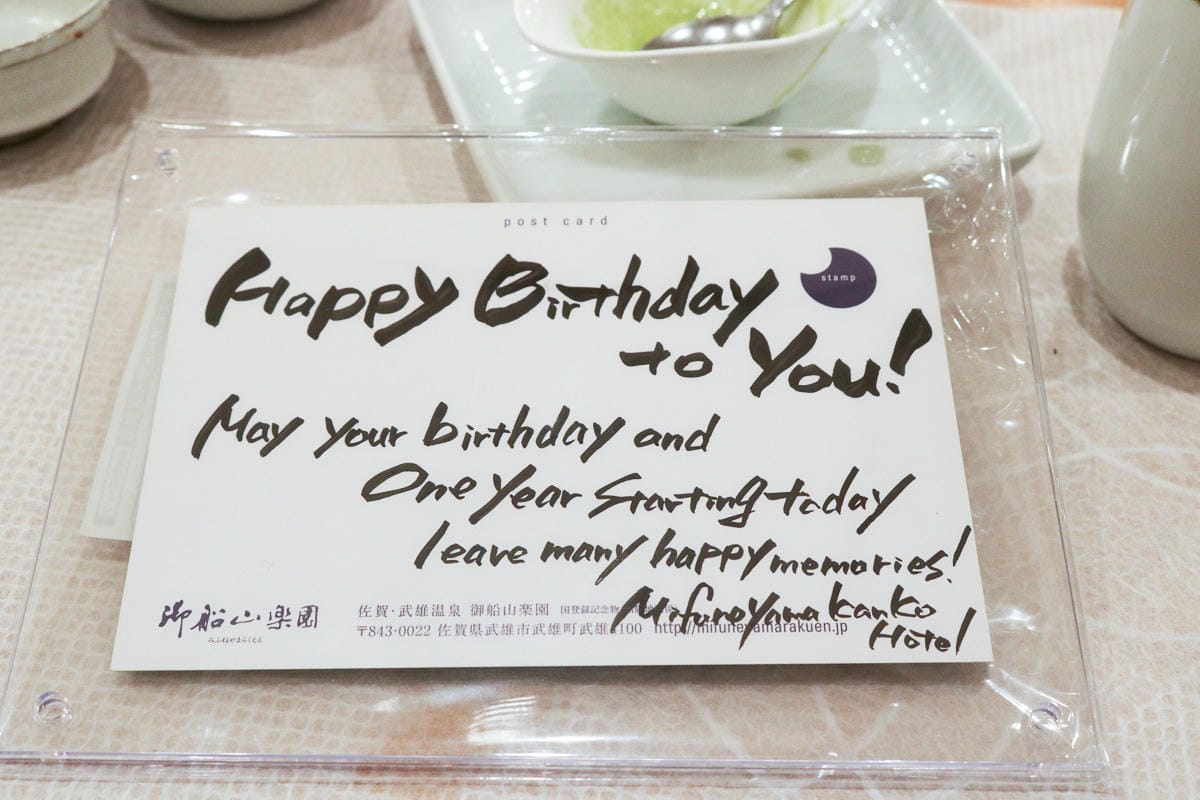 post card
stamp
Happy Birthday
to You!
May your birthday and
One year starting today
leave many happy memories!
Mifuneyama Kanko
Hotel
御船山楽園
みふねやまらくえん
佐賀・武雄温泉 御船山楽園 国登録記念物
〒843-0022 佐賀県武雄市武雄町武雄4100 http://mifuneyamarakuen.jp